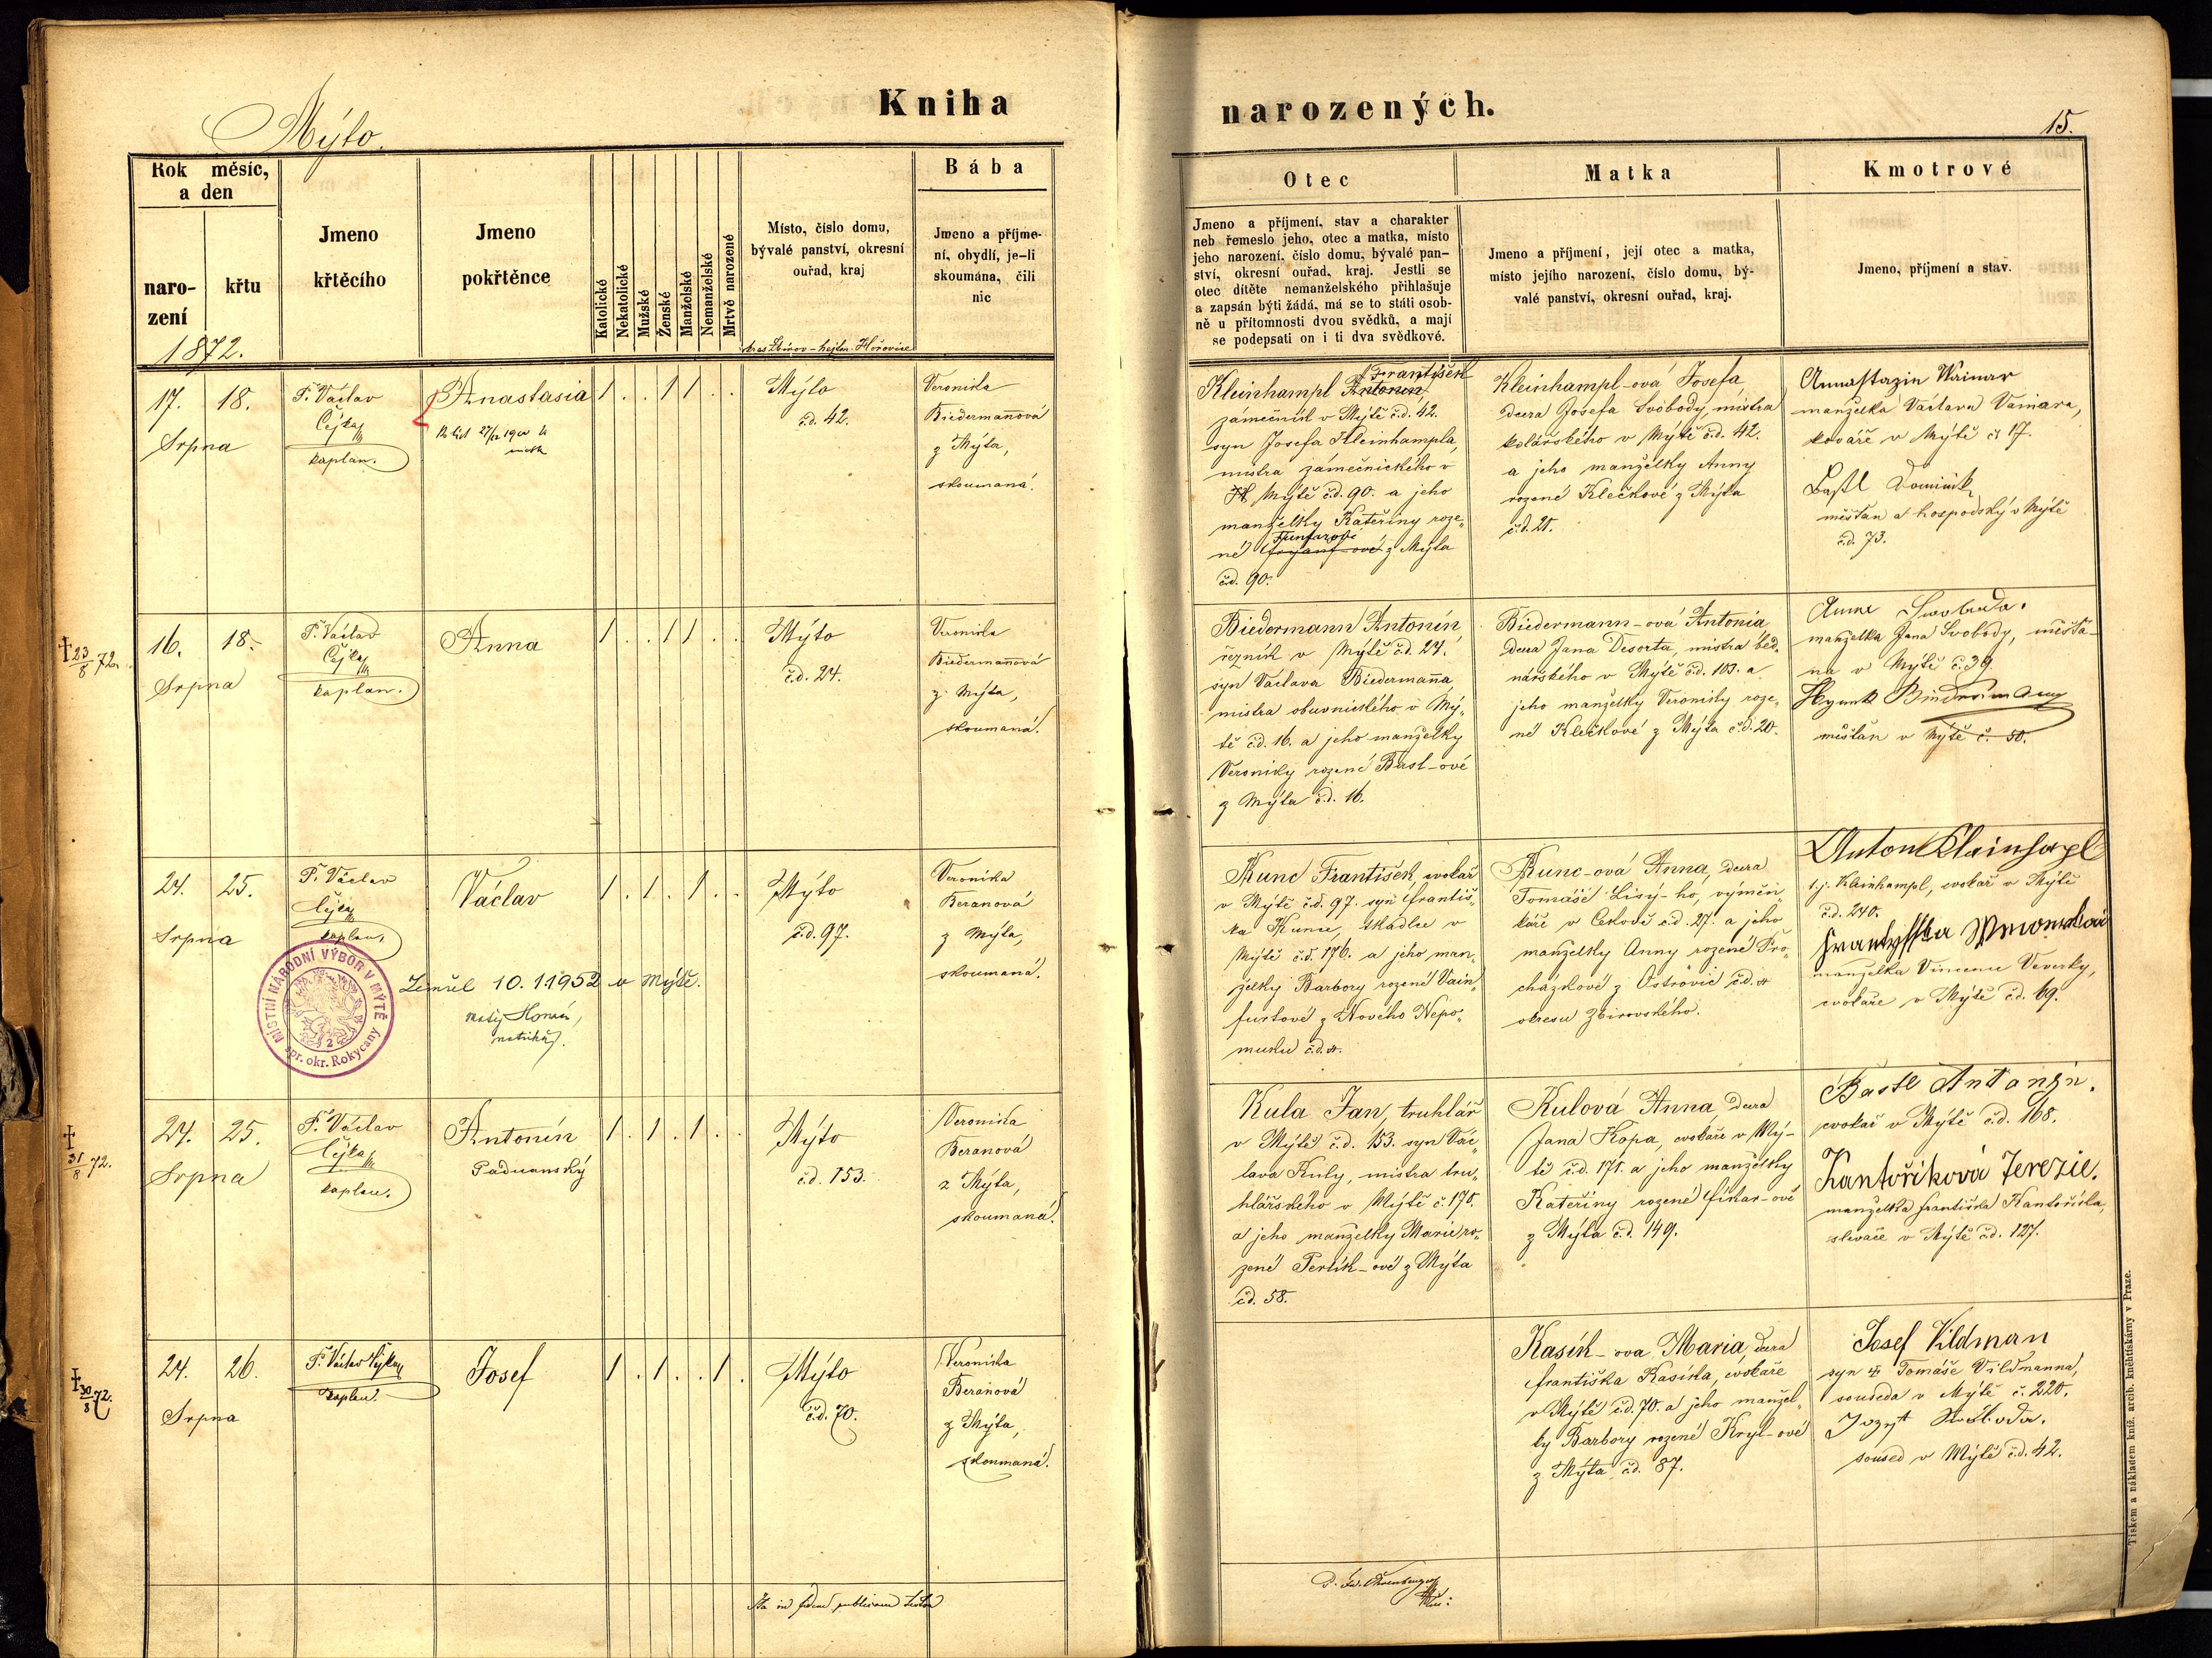 Mýto.
Kniha
narozených.
15.
Rok měsíc,
a den
naro-
zení
křtu
Jmeno
křtěcího
Jmeno
pokřtěnce
Katolické
Nekatolické
Mužské
Ženské
Manželské
Nemanželské
Mrtvě narozené
Místo, číslo domu,
bývalé panství, okresní
ouřad, kraj
Bába
Jmeno a příjme-
ní, obydlí, je-li
skoumána, čili
nic
Otec
Jmeno a příjmení, stav a charakter
neb řemeslo jeho, otec a matka, místo
jeho narození, číslo domu, bývalé pan-
ství, okresní ouřad, kraj. Jestli se
otec dítěte nemanželského přihlašuje
a zapsán býti žádá, má se to státi osob-
ně u přítomnosti dvou svědků, a mají
se podepsati on i ti dva svědkové.
Matka
Jmeno a příjmení, její otec a matka,
místo jejího narození, číslo domu, bý-
valé panství, okresní ouřad, kraj.
Kmotrové
Jmeno, příjmení a stav.
1872.
okres Zbirov - hejtm. Hořovice
17. 18.
Srpna
P. Václav
Čejka
kaplan.
Anastasia
27/12 1900
1 . . 1 1 . .
Mýto
č.d. 42.
Veronika
Biedermannová
z Mýta,
skoumaná.
František
Kleinhampl Antonín
zámečník v Mýtě č.d. 42.
syn Josefa Kleinhampla,
mistra zámečnického v
Mýtě č.d. 90. a jeho
manželky Kateřiny roze„
né z Mýta
č.d. 90.
Kleinhampl-ová Josefa,
dcera Josefa Svobody, mistra
kolářského v Mýtě č.d. 42.
a jeho manželky Anny
rozené Klečkové z Mýta
č.d. 21.
manželka Václava Vainara,
kováře v Mýtě č. 17.
Bastl Dominik
měšťan a hospodský v Mýtě
č.d. 73.
† 23/8 72.
16. 18.
Srpna
P. Václav
Čejka
kaplan.
Anna
1 . . 1 1 . .
Mýto
č.d. 24.
Veronika
Biedermannová
z Mýta,
skoumaná.
Biedermann Antonín
řezník v Mýtě č.d. 24.
syn Václava Biedermanna
mistra obuvnického v Mý„
tě č.d. 16. a jeho manželky
Veroniky rozené Bastl-ové
z Mýta č.d. 16.
Biedermann-ová Antonia
dcera Jana Deserta, mistra bed„
nářského v Mýtě č.d. 103. a
jeho manželky Veroniky roze„
né Klečkové z Mýta č.d. 20.
Anna Swoboda.
manželka Jana Svobody, měšťa-
na v Mýtě č. 39.
Hynek
měšťan v Mýtě č. 50.
24. 25.
Srpna
P. Václav
Čejka
kaplan,
Václav
1 . 1 . 1 . .
Mýto
č.d. 97.
Veronika
Beranová
z Mýta,
skoumaná.
MÍSTNÍ NÁRODNÍ VÝBOR V MÝTĚ
spr. okr. Rokycany
2
Zemřel 10.1.1952 v Mýtě.
matrikář.
Kunc František, cvokař
v Mýtě č.d. 97. syn Františ„
ka Kunce, tkadlce v
Mýtě č.d. 176. a jeho man„
želky Barbory rozené Vain„
furtové z Nového Nepo„
muku č.d.
Kunc-ová Anna, dcera
Tomáše Lisý-ho, výměn„
káře v Cekově č.d. 27. a jeho
manželky Anny rozené Pro„
cházkové z Ostrovic č.d.
okresu Zbirovského.
Anton
t.j. Kleinhampl, cvokař v Mýtě
č.d. 240.
manželka Vincence Veverky,
cvokaře v Mýtě č.d. 69.
† 31/8 72.
24. 25.
Srpna
P. Václav
Čejka
kaplan.
Antonín
Paduanský
1 . 1 . 1 . .
Mýto
č.d. 153.
Veronika
Beranová
z Mýta,
skoumaná.
Kula Jan, truhlář
v Mýtě č.d. 153. syn Vác„
lava Kuly, mistra tru„
hlářského v Mýtě č. 170.
a jeho manželky Marie ro„
zené Perlík-ové z Mýta
č.d. 58.
Kulová Anna, dcera
Jana Kopa, cvokaře v Mý-
tě č.d. 171. a jeho manželky
Kateřiny rozené Fikar-ové
z Mýta č.d. 149.
Bastl Antonín.
cvokař v Mýtě č.d. 168.
Kantoříková Terezie.
manželka Františka Kantoříka,
slevače v Mýtě č.d. 127.
† 30/8 72.
24. 26.
Srpna
P. Václav Čejka
kaplan.
Josef
1 . 1 . . 1 .
Mýto
č.d. 70.
Veronika
Beranová
z Mýta,
skoumaná.
Kasík-ova Maria, dcera
Františka Kasíka, cvokaře
v Mýtě č.d. 70. a jeho manžel„
ky Barbory rozené Kryl-ové
z Mýta č.d. 87.
Josef Vildman
syn Tomáše Vildmanna,
souseda v Mýtě č. 220.
soused v Mýtě č.d. 42.
Ita in fidem publicam testor
Tiskem a nákladem kníž. arcib. knihtiskárny v Praze.